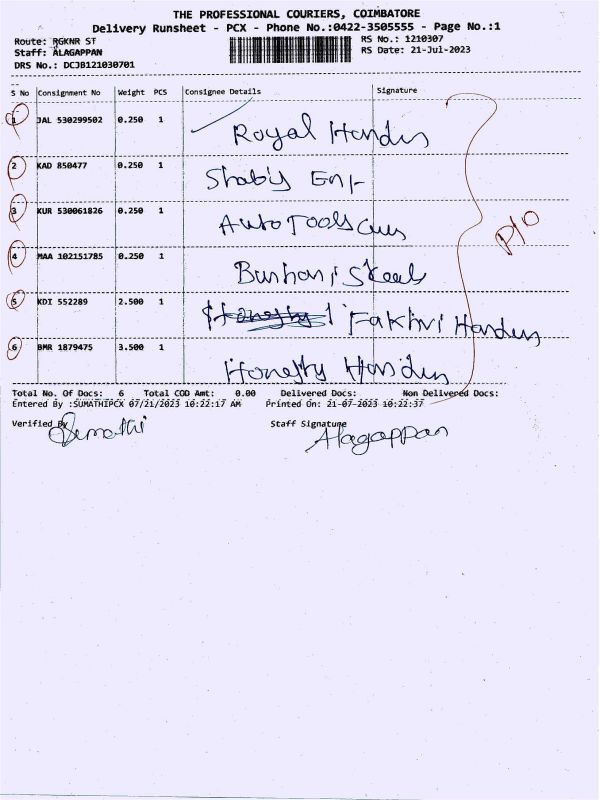 THE PROFESSIONAL COURIERS, COIMBATORE
Delivery Runsheet - PCX - Phone No.:0422-3505555 - Page No.:1
Route: RGKNR ST
RS No.: 1210307
Staff: ALAGAPPAN
RS Date: 21-Jul-2023
DRS No.: DCJB121030701
S No Consignment No Weight PCS Consignee Details Signature
1 JAL 530299502 0.250 1 Royal
2 KAD 850477 0.250 1
3 KUR 530061826 0.250 1 Auto Tools
4 MAA 102151785 0.250 1 Burhani Steels
5 KDI 552289 2.500 1 Fakhri
6 BMR 1879475 3.500 1 Honesty
P/O
Total No. Of Docs: 6 Total COD Amt: 0.00 Delivered Docs: Non Delivered Docs:
Entered By :SUMATHIPCX 07/21/2023 10:22:17 AM Printed On: 21-07-2023 10:22:37
Verified By Staff Signature
Sumathi Alagappan